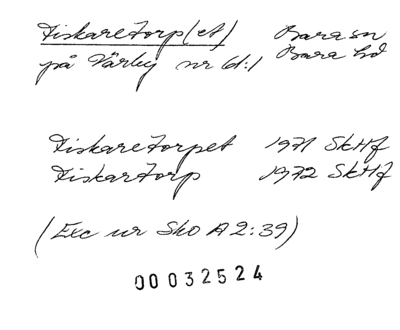 Fiskaretorp(et) Bara sn
på Värby nr 6d:1 Bara hd
Fiskaretorpet 1971 SkHf
Fiskartorp 1972 SkHf
(Exc ur Sko A 2:39)
00032524